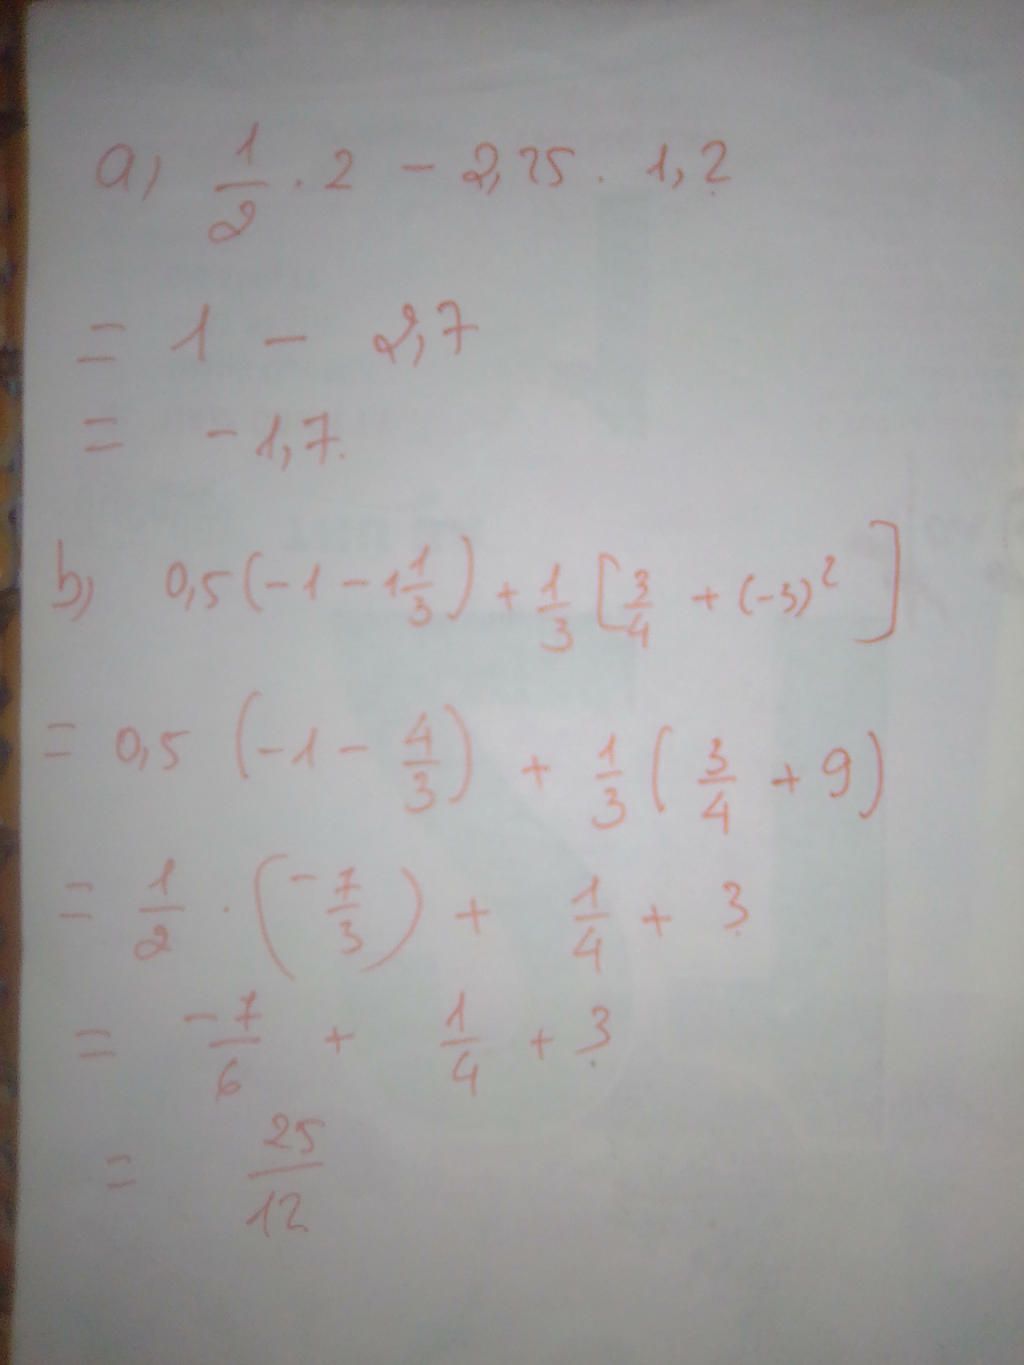 a, 1/2 . 2 - 2,25 . 1,2
= 1 - 2,7
= -1,7.
b, 0,5(-1 - 1 1/3) + 1/3 [3/4 + (-3)²]
= 0,5 (-1 - 4/3) + 1/3 (3/4 + 9)
= 1/2 . (-7/3) + 1/4 + 3
= -7/6 + 1/4 + 3
= 25/12